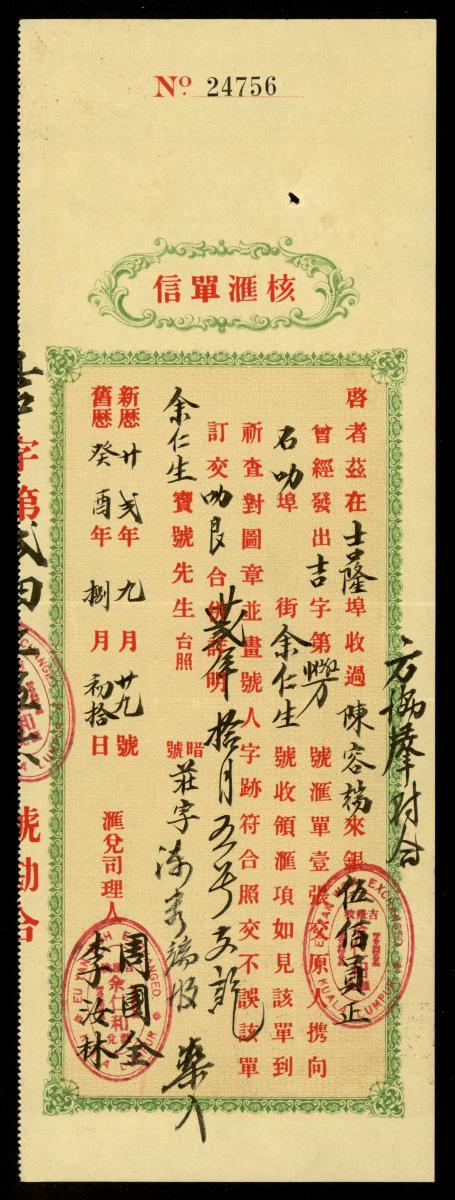 No. 24756
核滙單信
啓者茲在士隆埠收過陳容楊來銀伍佰員正
曾經發出吉字第 號滙單壹張交原人携向
石叻埠 街余仁生號收領滙項如見該單到
祈查對圖章並畫號人字跡符合照交不誤該單
訂交叻良合併詳明
弍年拾月五号支訖
余仁生寶號先生台照
暗號 莊字
新歷廿弍年九月廿九號
舊歷癸酉年捌月初拾日
滙兌司理人 周國全 李汝林
吉字第 號勘合
EU YAN SANG EXCHANGE
KUALA LUMPUR
余仁和